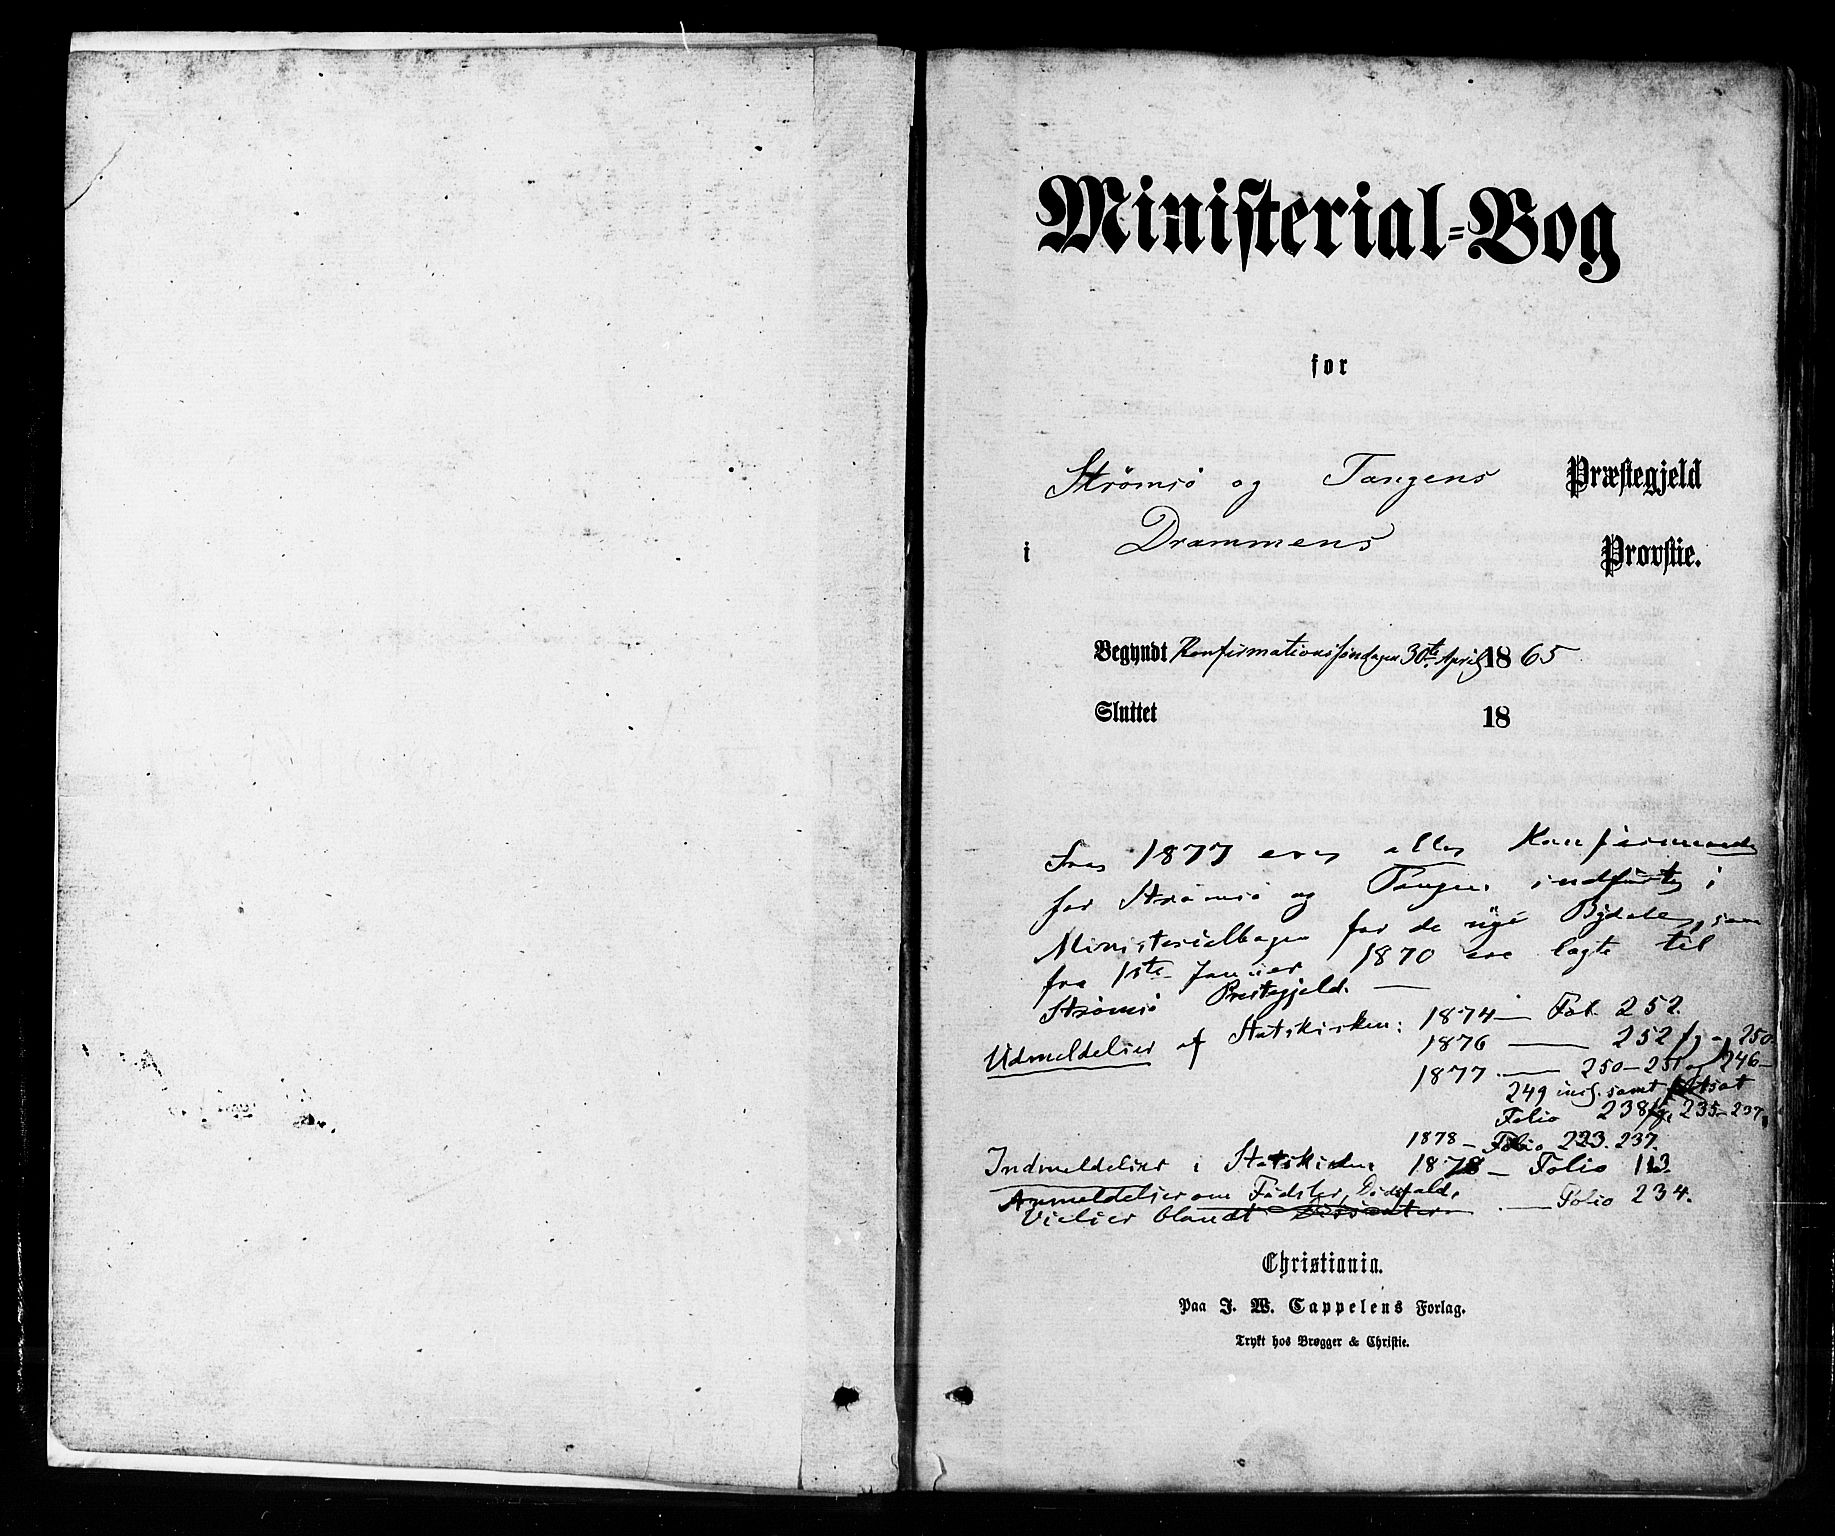 Ministerial-Bog
for
Strømsø og Tangens Præstegjeld
i Drammens Provstie.
Begyndt Konfirmationssøndagen 30te April 1865
Sluttet 18
Fra 1877 ere alle Konfirmande
for Strømsø og Tangen indførte i
Ministerialbogen for de nye Bydele, som
fra 1ste Januer 1870 ere lagte til
Strømsø Prestegjeld. —
Udmeldelser af Statskirken: 1874 — Fol. 252.
1876 — 252 fg og 250
1877 — 250 — 251 og 246 —
249 incl. samt
Folio 238 fg. 235 — 237.
1878 — Folio 223. 237.
Indmeldelser i Statskirken 1878 — Folio 113.
Anmeldelser om Fødsler, Dødsfald,
Vielser blandt Dissentere — Folio 234.
Christiania.
Paa J. W. Cappelens Forlag.
Trykt hos Brøgger & Christie.